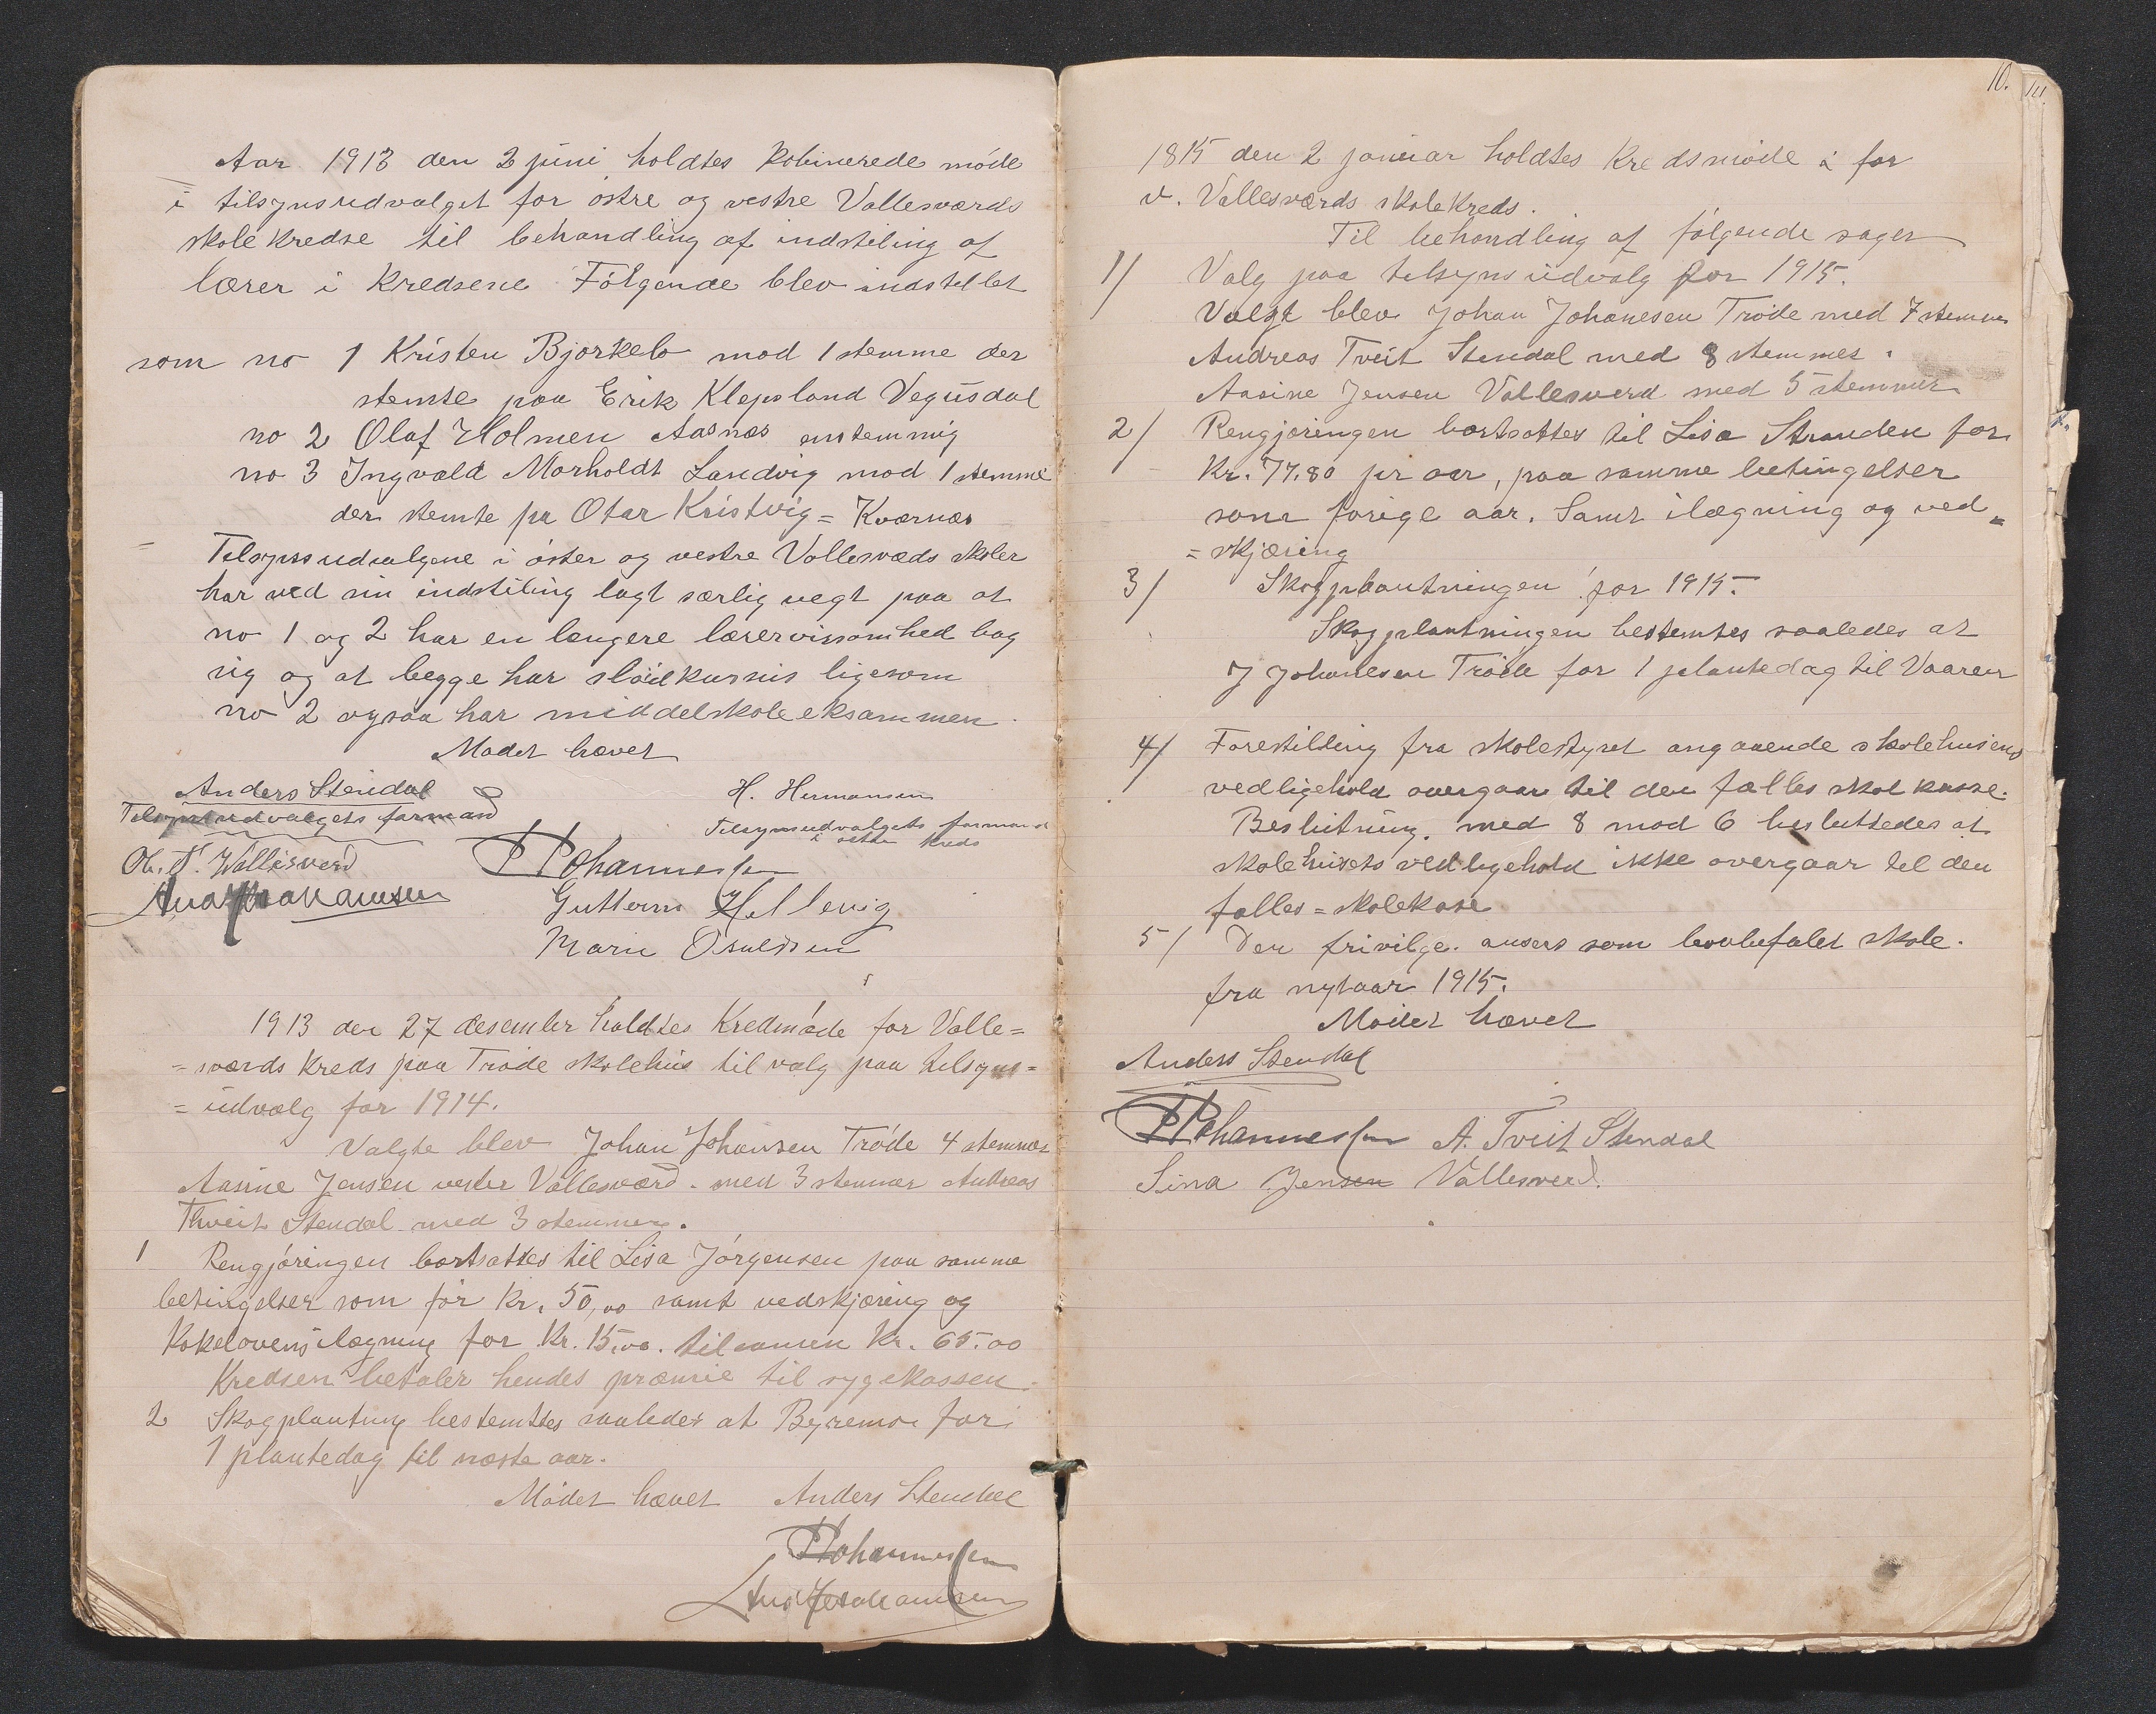 Aar 1913 den 2 juni holdtes kobinerede møde
i tilsynsudvalget for østre og vestre Vallesværds
skolekredse til behandling af indstiling af
lærer i kredsene Følgende blev indstillet
som no 1 Kristen Bjorkelo mod 1 stemme der
stemte paa Erik Klepsland Vegusdal
no 2 Olaf Holmen Aasnæs enstemmig
no 3 Ingvald Morholdt Landvig mod 1 stemme
der stemte pa Otar Kristvig = Kværnæs
Tilsynsudvalgene i øster og vestre Vallesvæds skoler
har ved sin indstiling lagt særlig vegt paa at
no 1 og 2 har en længere lærervirsomhed bag
sig og at begge har sløidkursus ligesom
no 2 ogsaa har middelskoleeksammen.
Mødet hævet
Anders Stendal H. Hermansen
Tilsynsudvalgets formand Tilsynsudvalgets formand
i østre kreds
Ol. T. Wallisverd P Johannessen
Guttorm Hellevig
Marie Osuldsen
1913 den 27 desember holdtes Kredmøde for Valle=
=sværds kreds paa Trøde skolehus til valg paa tilsyns=
=udvalg for 1914.
Valgte blev Johan Johansen Trøde 4 stemmer
Aasine Jensen vester Vallesværd. med 3 stemmer Andreas
Thveit Stendal med 3 stemmer.
1 Rengjøringen bortsattes til Lisa Jørgensen paa samme
betingelser som før Kr. 50,00 samt vedskjæring og
Kokelovensilægning for Kr. 15,00. tilsamen Kr. 65.00
Kredsen betaler hendes præmie til sygekassen.
2 Skogplanting bestemtes saaledes at Byremo far
1 plantedag til næste aar.
Mødet hævet Anders Stendal
P Johannessen
10.
1815 den 2 januar holdtes Kredsmøde i for
v. Vallesværds skolekreds.
Til behandling af følgende sager
1/ Valg paa tilsynsudvalg for 1915.
Valgt blev Johan Johanesen Trøde med 7 stemmer
Andreas Tveit Stendal med 8 stemmer.
Aasine Jensen Vallesverd med 5 stemmer
2/ Rengjøringen bortsattes til Lisa Stranden for
Kr. 77.80 pr aar, paa samme betingelser
som forige aar. Samt ilægning og ved=
=skjæring
3/ Skogplantningen for 1915.
Skogplantningen bestemtes saaledes at
J Johanesen Trøde far 1 plantedag til Vaaren
4/ Forestilling fra skolestyret angaaende skolehusens
vedligehold overgaar til den fælles skolkasse.
Beslutning. med 8 mod 6 besluttedes at
skolehusets vedligehold ikke overgaar til den
falles=skolekase
5/ Den frivilge. ansees som lovbefalet skole.
fra nytaar 1915.
Mødet hævet
Anders Stendal
P Johannessen A. Tveit Stendal
Sina Jensen Vallesverd.